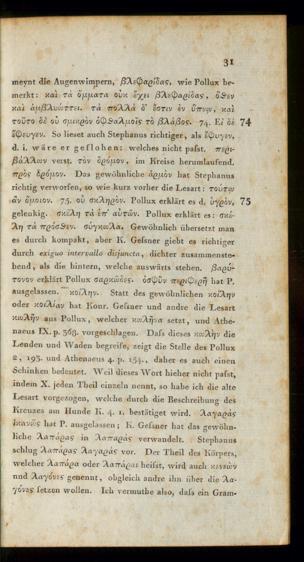 31
meynt die Augenwimpern, βλεφαρίδας, wie Pollux be-
merkt: καὶ τὰ ὄμματα οὐκ ἔχει βλεφαρίδας, ὅθεν
καὶ ἀμβλυώττει. τὰ πολλὰ δ' ἔστιν ἐν ὕπνῳ, καὶ
τοῦτο δὲ οὐ σμικρὸν ὀφθαλμοῖς τὸ βλάβος. 74. Εἰ δὲ 74
ἔφευγεν. So lieset auch Stephanus richtiger, als ἔφυγεν,
d. i. wäre er geflohen: welches nicht passt. περι-
βάλλων verst. τὸν δρόμον, im Kreise herumlaufend.
πρὸς δρόμον. Das gewöhnliche ἅρμον hat Stephanus
richtig verworfen, so wie kurz vorher die Lesart: τούτῳ
ἂν ὅμοιον. 75. οὐ σκληρὸν. Pollux erklärt es d. ὑγρὸν, 75
gelenkig. σκέλη τὰ ἐπ' αὐτῶν. Pollux erklärt es: σκέ-
λη τὰ πρόσθεν. σύγκωλα. Gewöhnlich übersetzt man
es durch kompakt, aber K. Gesner giebt es richtiger
durch exiguo intervallo disjuncta, dichter zusammenste-
hend, als die hintern, welche auswärts stehen. βαρύ-
τονον erklärt Pollux σαρκώδες. ὀσφῦν περιφερῆ hat P.
ausgelassen. κοίλην. Statt des gewöhnlichen κοίλην
oder κοιλίαν hat Konr. Gesner und andre die Lesart
κωλῆν aus Pollux, welcher κωλῆνα setzt, und Athe-
naeus IX. p. 368. vorgeschlagen. Daſs dieses κωλῆν die
Lenden und Waden begreife, zeigt die Stelle des Pollux
2, 193. und Athenaeus 4. p. 154., daher es auch einen
Schinken bedeutet. Weil dieses Wort hieher nicht paſst,
indem X. jeden Theil einzeln nennt, so habe ich die alte
Lesart vorgezogen, welche durch die Beschreibung des
Kreuzes am Hunde K. 4. 1. bestätiget wird. λαγαρὰς
ἱκανῶς hat P. ausgelassen; K. Gesner hat das gewöhn-
liche λαπάρας in λαπαρὰς verwandelt. Stephanus
schlug λαπάρας λαγαρὰς vor. Der Theil des Körpers,
welcher λαπάρα oder λαπάραι heiſst, wird auch κενεὼν
und λαγόνες genennt, obgleich andre ihn über die λα-
γόνες setzen wollen. Ich vermuthe also, daſs ein Gram-